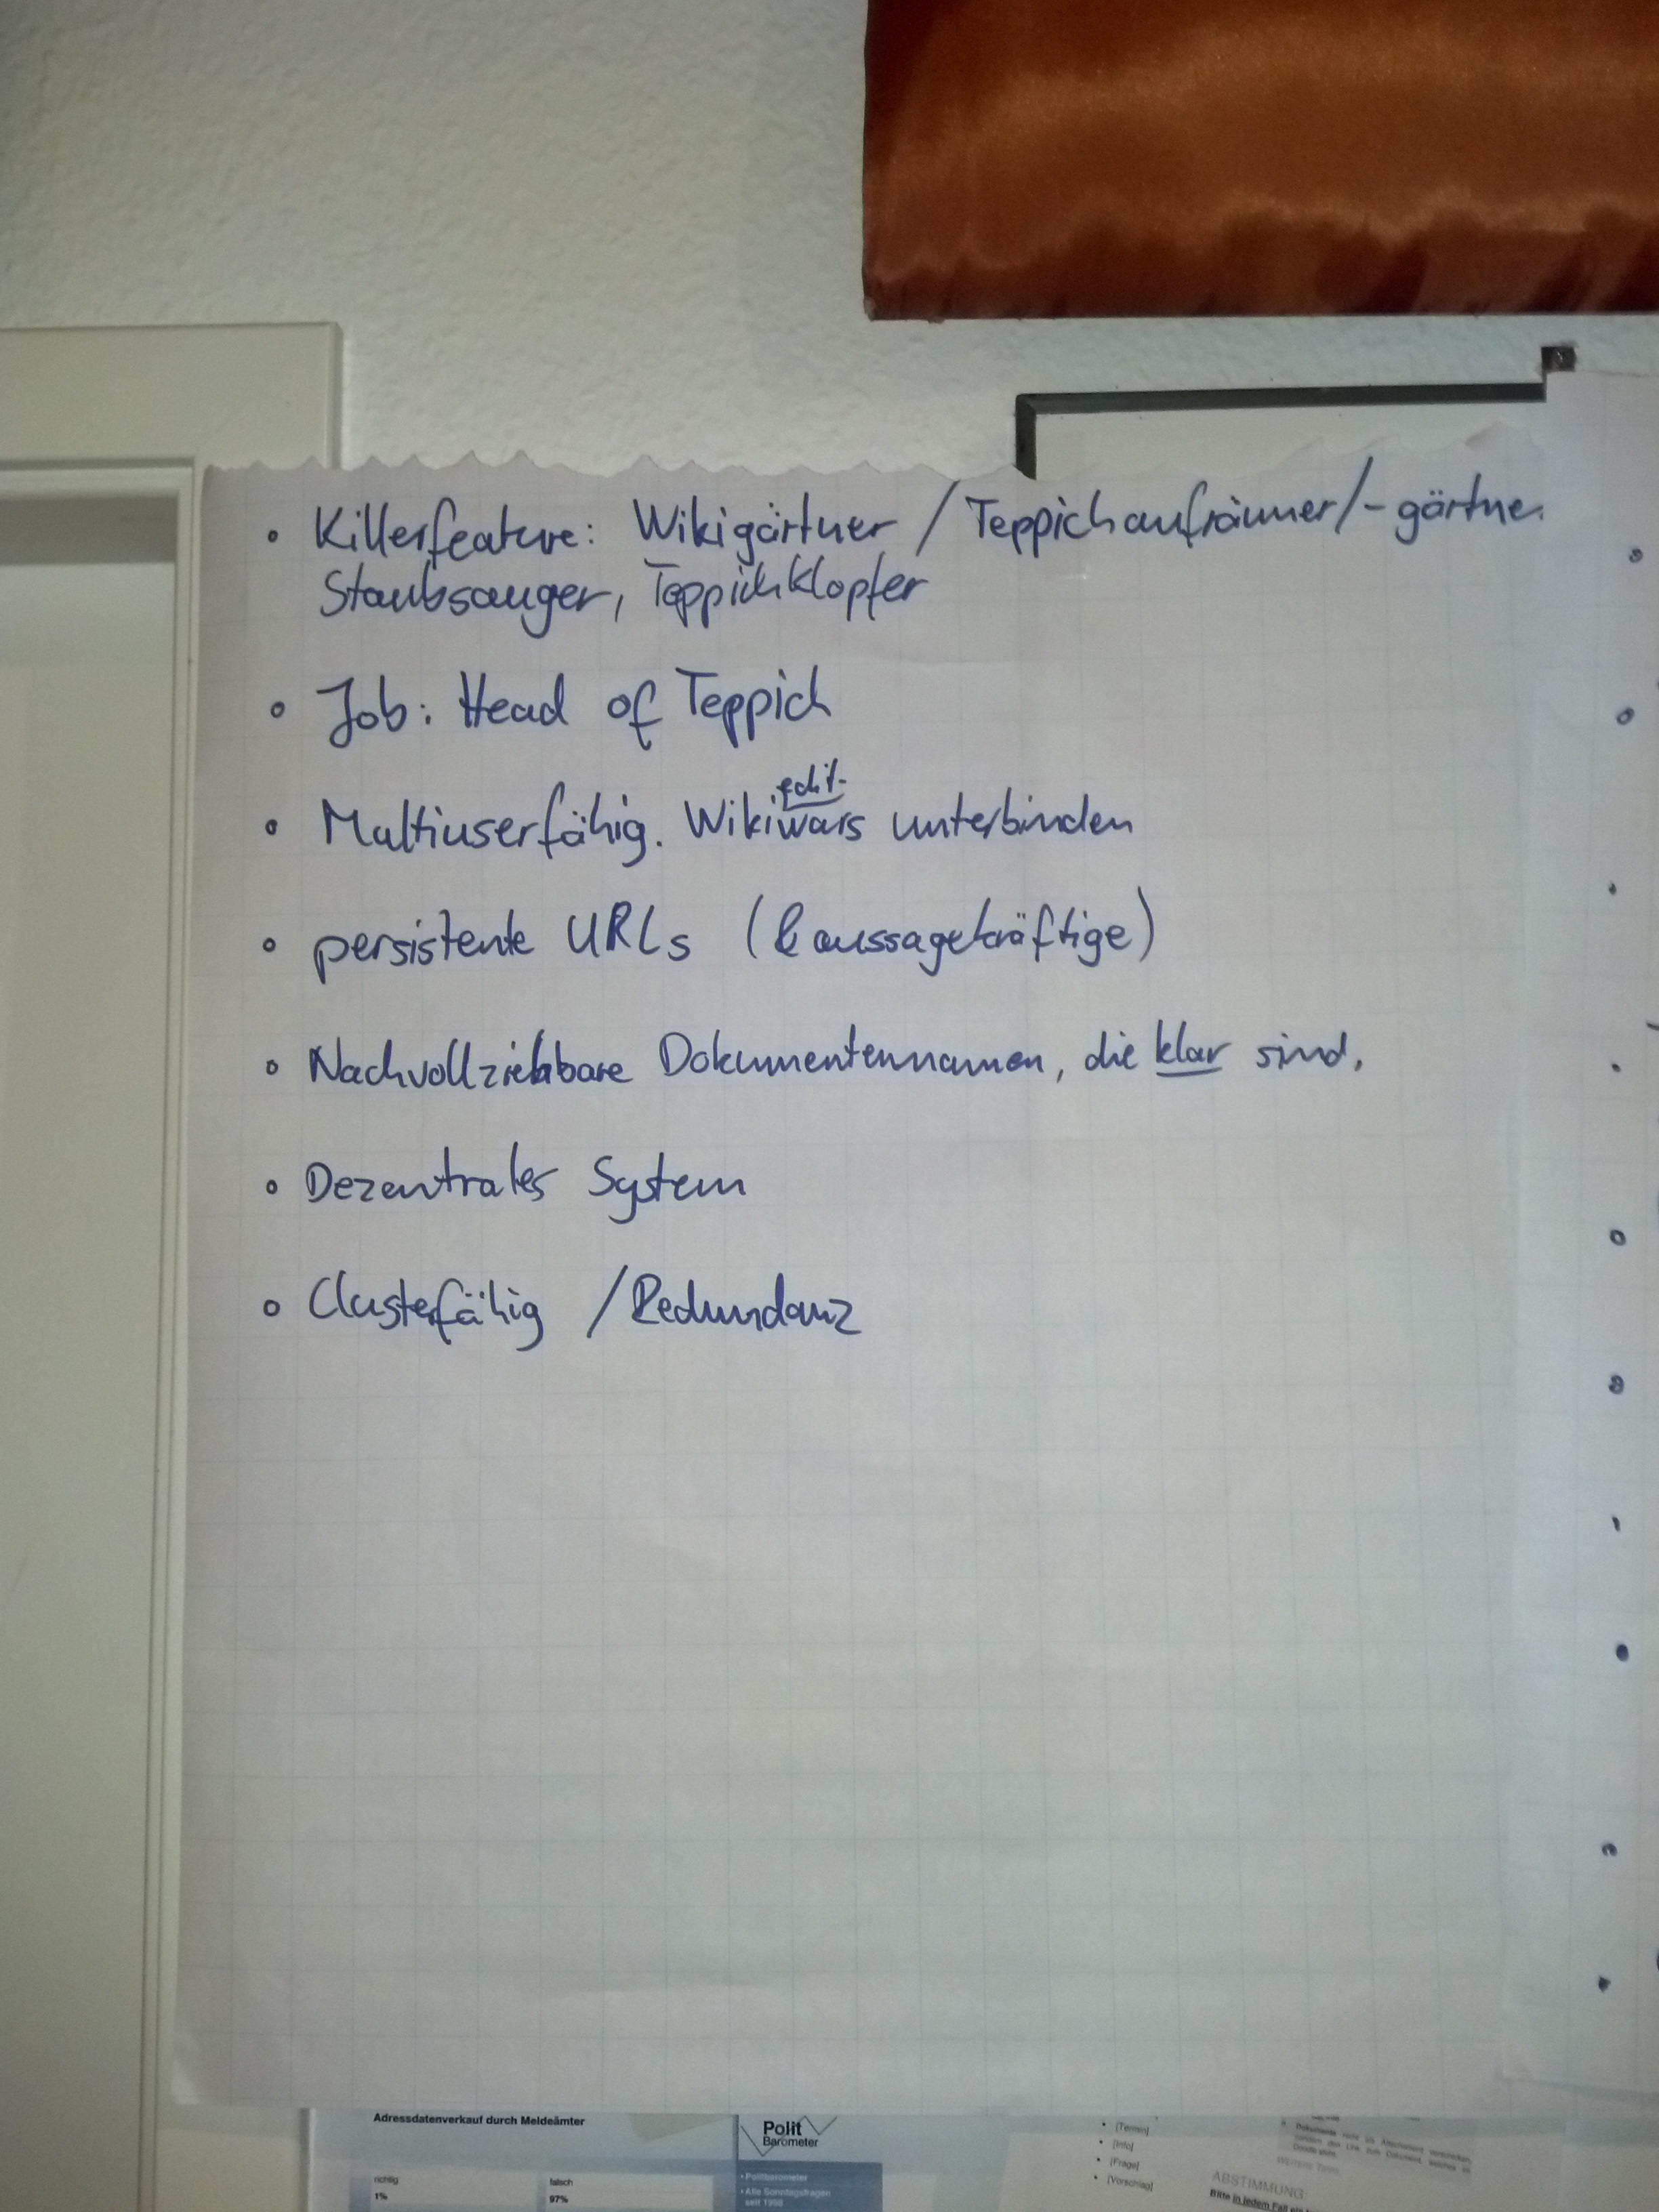 • Killerfeature: Wikigärtner / Teppichaufräumer/-gärtner
Staubsauger, Teppichklopfer
• Job: Head of Teppich
edit-
• Multiuserfähig. Wikiwars unterbinden
• persistente URLs (& aussagekräftige)
• Nachvollziehbare Dokumentennamen, die klar sind.
• Dezentrales System
• Clusterfähig / Redundanz
Adressdatenverkauf durch Meldeämter
richtig falsch
1% 97%
Polit
Barometer
• Politbarometer
• Alle Sonntagsfragen
seit 1998
• [Termin]
• [Info]
• [Frage]
• [Vorschlag]
ABSTIMMUNG:
Bitte in jedem Fall